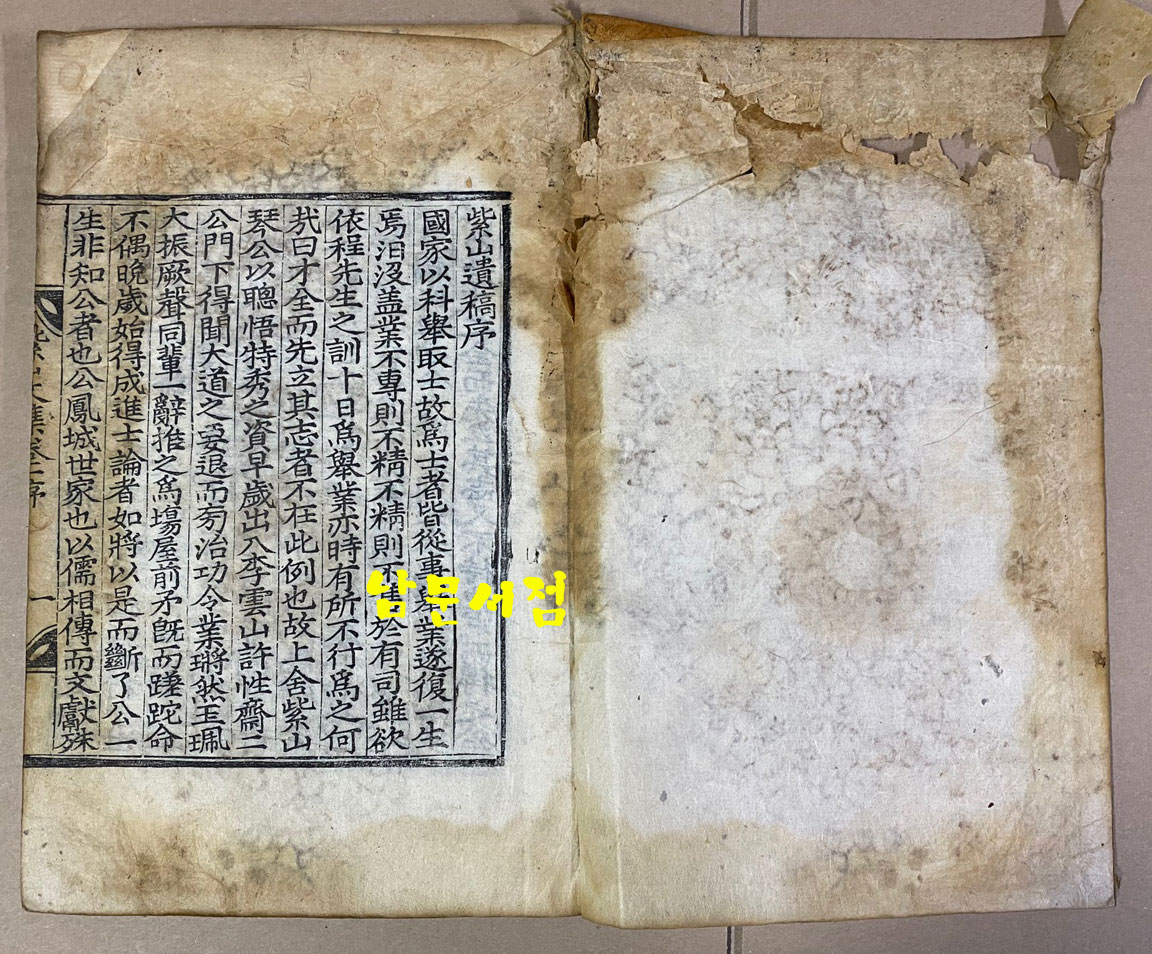 紫山遺稿序
國家以科舉取士故爲士者皆從事舉業遂復一生
焉汨沒盖業不專則不精不精則不售於有司雖欲
依程先生之訓十日爲舉業亦時有所不行爲之何
㢤曰才全而先立其志者不在此例也故上舍紫山
琴公以聰悟特秀之資早歲出入李雲山許性齋二
公門下得聞大道之要退而旁治功令業瑲然玉珮
大振厥聲同輩一辭推之爲塲屋前矛旣而蹉跎命
不偶晩歲始得成進士論者如將以是而斷了公一
生非知公者也公鳳城世家也以儒相傳而文獻殊
紫山文集卷一序
一
남문서점